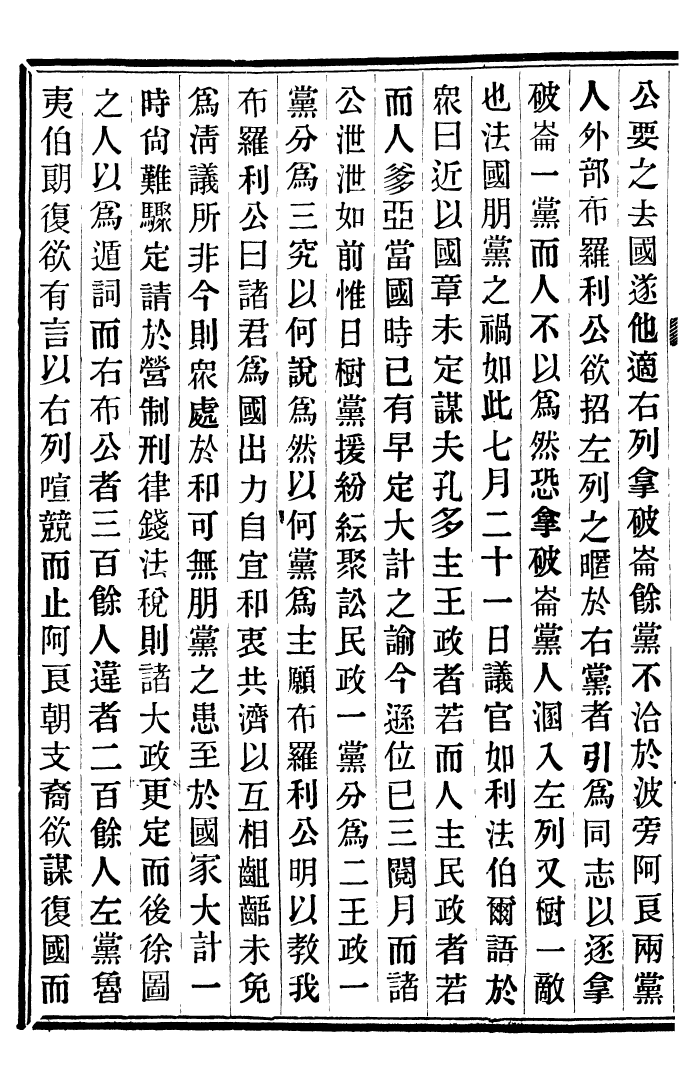 公要之去國遂他適右列拿破崙餘黨不洽於波旁阿良兩黨
人外部布羅利公欲招左列之暱於右黨者引爲同志以逐拿
破崙一黨而人不以爲然恐拿破崙黨人溷入左列又樹一敵
也法國朋黨之禍如此七月二十一日議官如利法伯爾語於
眾曰近以國章未定謀夫孔多主王政者若而人主民政者若
而人爹亞當國時已有早定大計之諭今遜位已三閱月而諸
公泄泄如前惟日樹黨援紛紜聚訟民政一黨分爲二王政一
黨分爲三究以何說爲然以何黨爲主願布羅利公明以教我
布羅利公曰諸君爲國出力自宜和衷共濟以互相齟齬未免
爲淸議所非今則眾處於和可無朋黨之患至於國家大計一
時尙難驟定請於營制刑律錢法稅則諸大政更定而後徐圖
之人以爲遁詞而右布公者三百餘人違者二百餘人左黨魯
夷伯朗復欲有言以右列喧競而止阿良朝支裔欲謀復國而